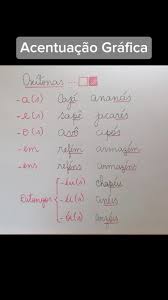 Acentuação Gráfica
Oxítonas
-a(s) ananás
-e(s) sapé jacarés
-o(s) avô cipós
-em refém armazém
-ens reféns armazéns
Ditongos -éu(s) chapéus
-éi(s) anéis
-ói(s)